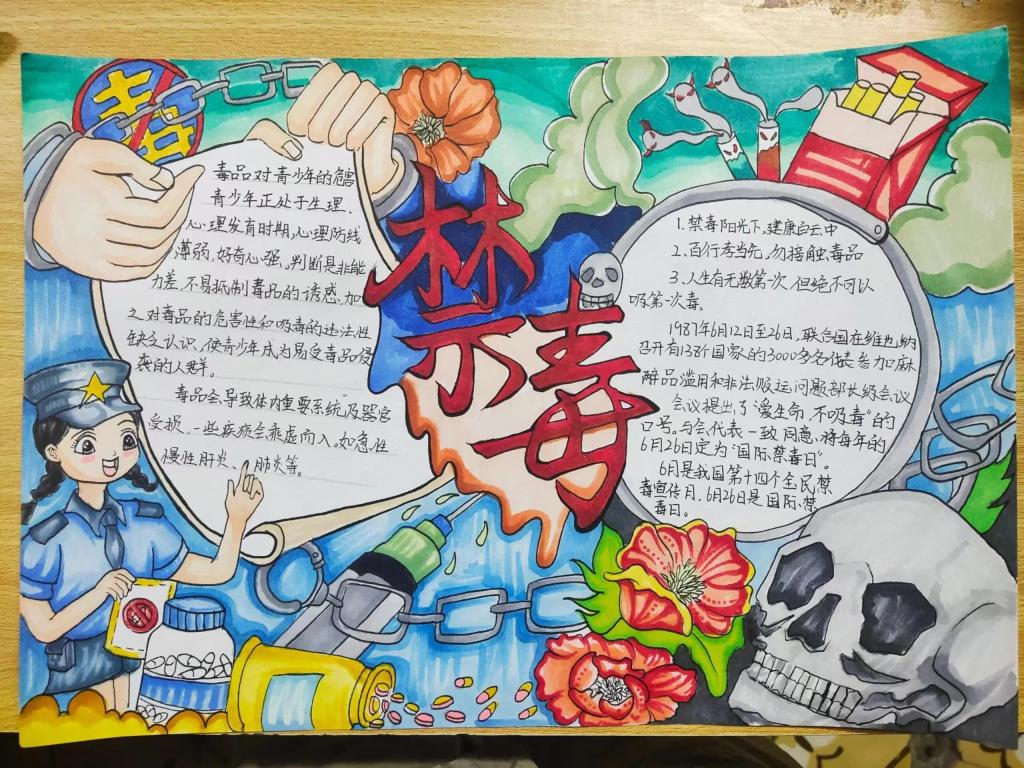 毒
禁毒
毒品对青少年的危害
青少年正处于生理、
心理发育时期,心理防线
薄弱,好奇心强。判断是非能
力差,不易抵制毒品的诱惑,加
之对毒品的危害性和吸毒的违法性
缺乏认识,使青少年成为易受毒品侵
袭的人群。
毒品会导致体内重要系统及器官
受损,一些疾病会乘虚而入。如急性
慢性肝炎、肺炎等。
1.禁毒阳光下,健康白云中
2.百行孝当先,勿接触毒品
3.人生有无数第一次,但绝不可以
吸第一次毒。
1987年6月12日至26日,联合国在维也纳
召开有138个国家的3000多名代表参加麻
醉品滥用和非法贩运问题部长级会议
会议提出了"爱生命,不吸毒"的
口号。与会代表一致同意,将每年的
6月26日定为"国际禁毒日"。
6月是我国第十四个全民禁
毒宣传月。6月26日是国际禁
毒日。